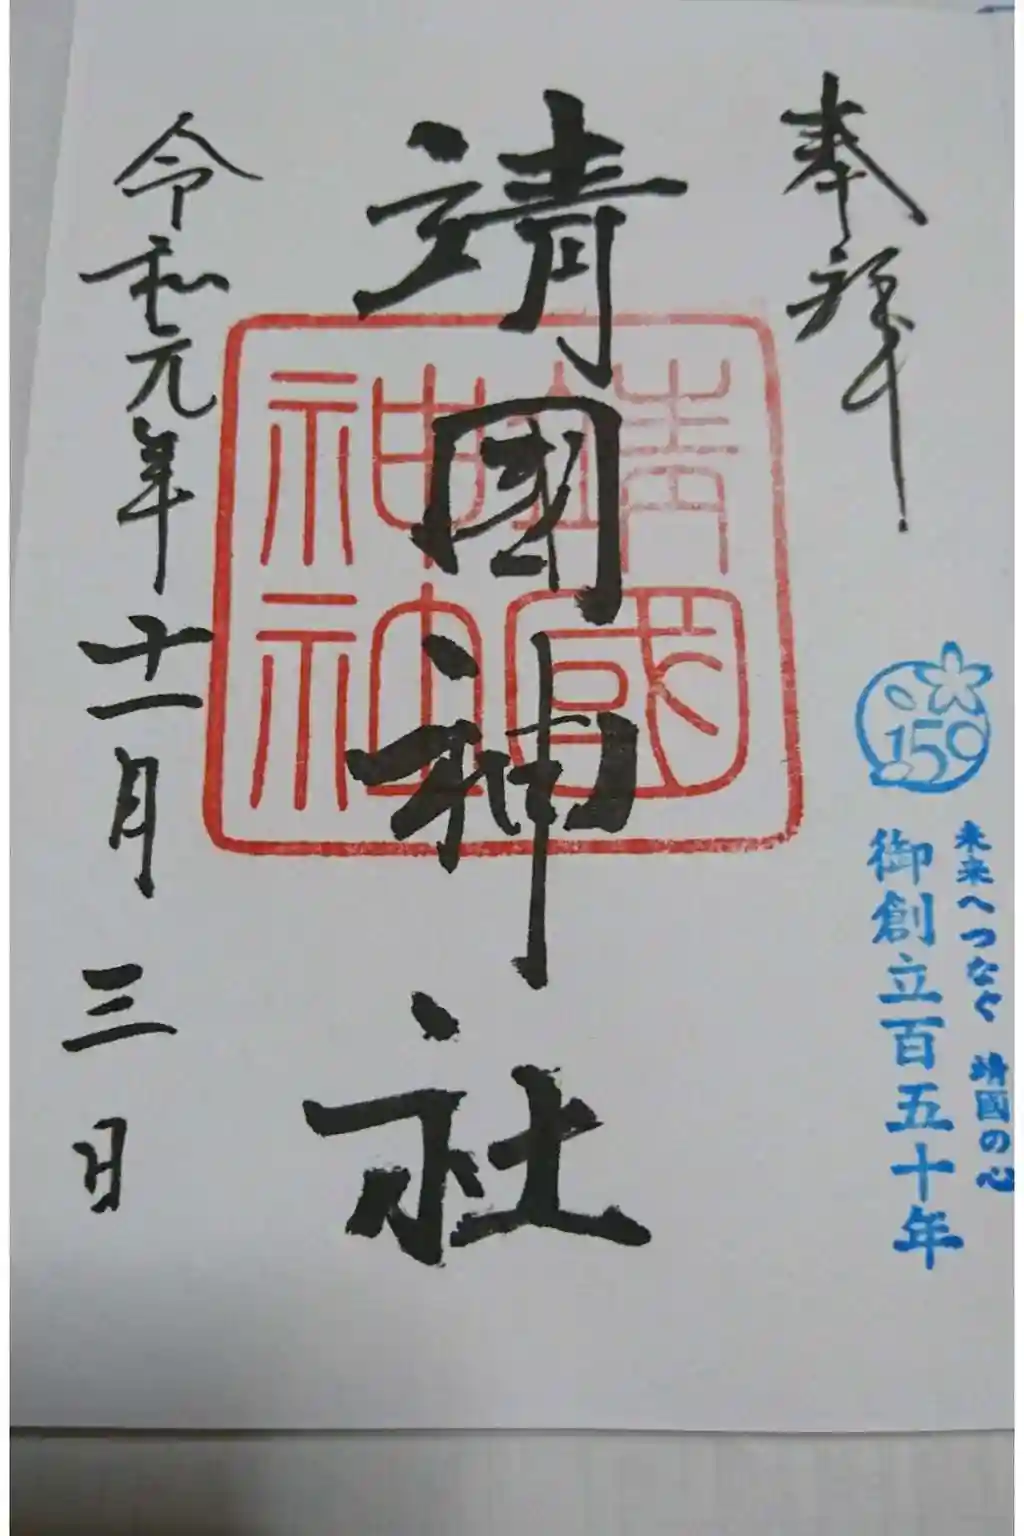 奉拝
150
未来へつなぐ 靖國の心
御創立百五十年
靖國神社
靖國
神社
令和元年十一月三日